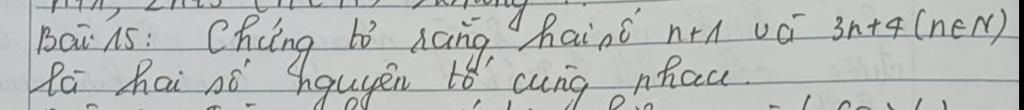 Bài 15: Chứng tỏ rằng hai số n+1 và 3n+4 (n∈N)
là hai số nguyên tố cùng nhau.